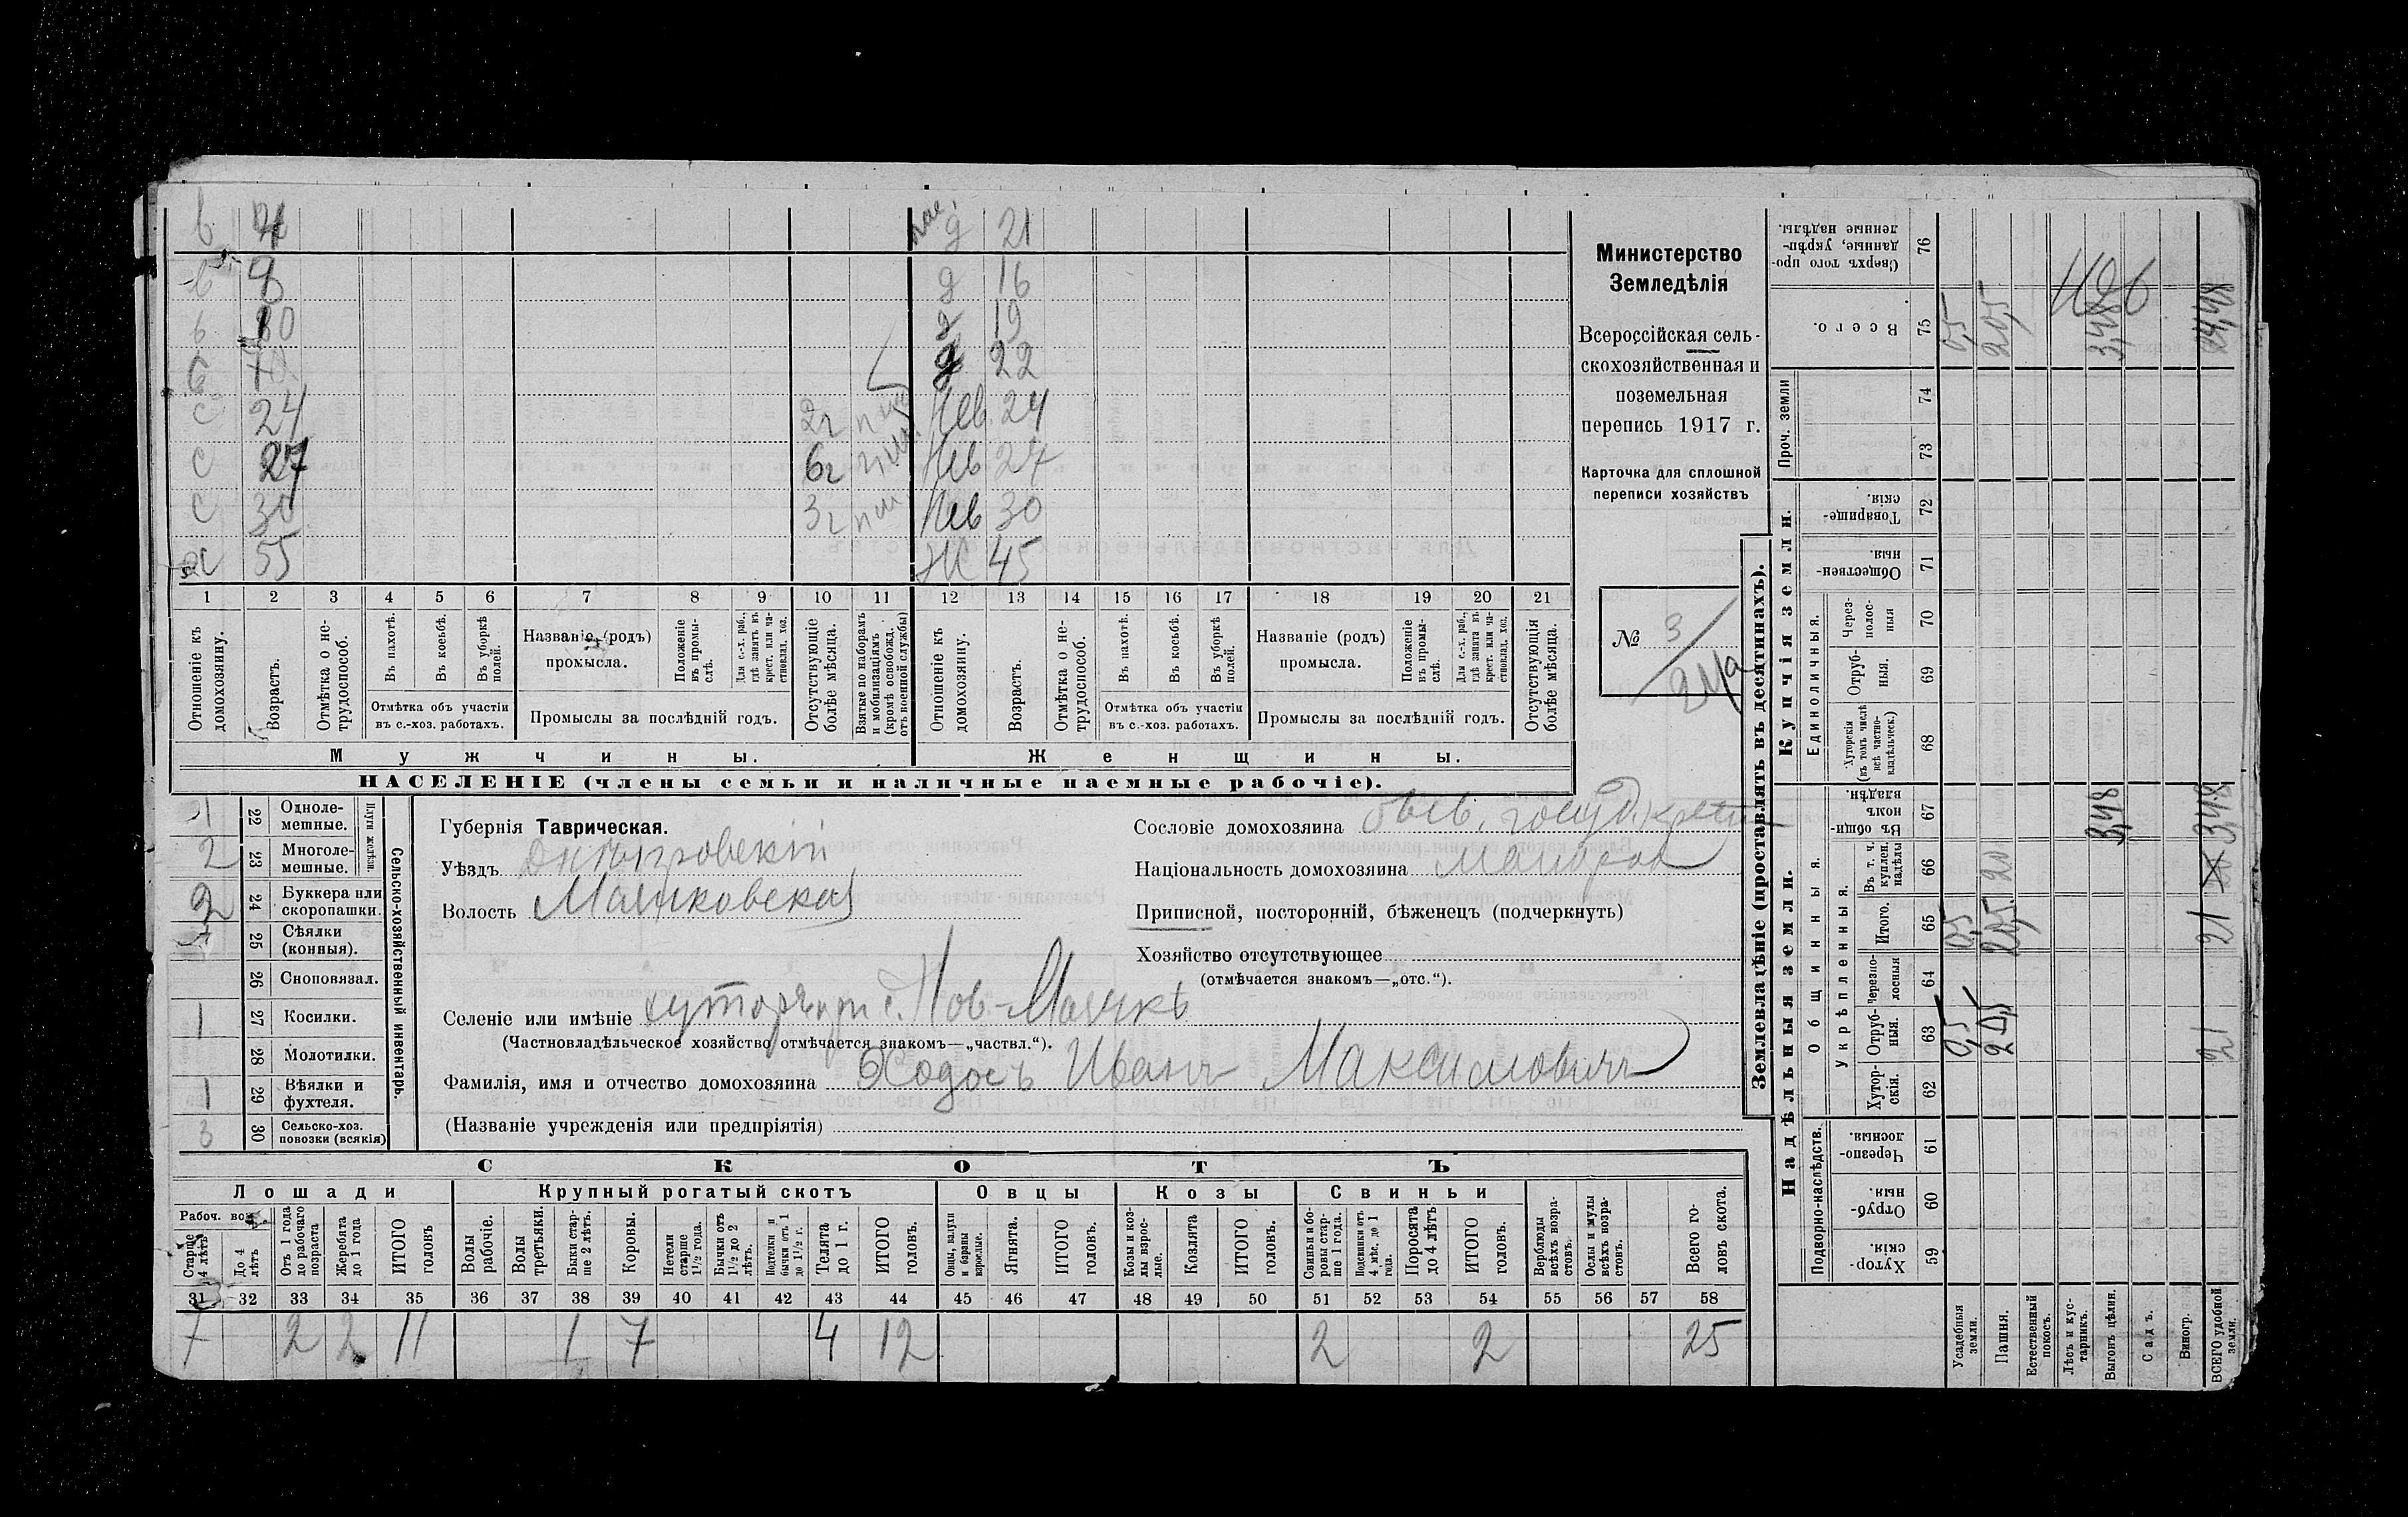 в
д 21
д 16
19
22
с 24 2г Нев 24
с 27 6г Нев 27
с 30 3г Нев 30
х 55 Ж 45
1 2 3 4 5 6 7 8 9 10 11 12 13 14 15 16 17 18 19 20 21
Отношеніе къ домохозяину.
Возрастъ.
Отмѣтка о нетрудоспособ.
Въ пахотѣ.
Въ косьбѣ.
Въ уборкѣ полей.
Отмѣтка объ участіи въ с.-хоз. работахъ.
Названіе (родъ) промысла.
Положеніе въ промыслѣ.
Для с.-х. раб., гдѣ занятъ въ крест. или частновлад. хоз.
Промыслы за послѣдній годъ.
Отсутствующіе болѣе мѣсяца.
Взятые по наборамъ и мобилизаціямъ (кромѣ освобожд. отъ военной службы)
Отношеніе къ домохозяину.
Возрастъ.
Отмѣтка о нетрудоспособ.
Въ пахотѣ.
Въ косьбѣ.
Въ уборкѣ полей.
Отмѣтка объ участіи въ с.-хоз. работахъ.
Названіе (родъ) промысла.
Положеніе въ промыслѣ.
Для с.-х. раб., гдѣ занята въ крест. или частновлад. хоз.
Промыслы за послѣдній годъ.
Отсутствующія болѣе мѣсяца.
Мужчины.
Женщины.
НАСЕЛЕНІЕ (члены семьи и наличные наемные рабочіе).
Министерство
Земледѣлія
Всероссійская сель-
скохозяйственная и
поземельная
перепись 1917 г.
Карточка для сплошной
переписи хозяйствъ
№ 3
Сельско-хозяйственный инвентарь.
Плуги желѣзн.
1 22 Одноле-мешные.
2 23 Многоле-мешные.
2 24 Буккера или скоропашки.
25 Сѣялки (конныя).
26 Сноповязал.
1 27 Косилки.
28 Молотилки.
1 29 Вѣялки и фухтеля.
3 30 Сельско-хоз. повозки (всякія)
Губернія Таврическая.
Уѣздъ Днѣпровскій
Волость Маячковская
Сословіе домохозяина быв. госуд. крест
Національность домохозяина малорос
Приписной, посторонній, бѣженецъ (подчеркнуть)
Хозяйство отсутствующее
(отмѣчается знакомъ—„отс.“).
Селеніе или имѣніе хуторъ при с. Нов-Маячкѣ
(Частновладѣльческое хозяйство отмѣчается знакомъ—„частвл.“).
Фамилія, имя и отчество домохозяина Ходосъ Иванъ Максимовичъ
(Названіе учрежденія или предпріятія)
СКОТЪ
Лошади
Крупный рогатый скотъ
Овцы
Козы
Свиньи
Рабоч. воз.
Старше 4 лѣтъ
До 4 лѣтъ
Отъ 1 года до рабочаго возраста
Жеребята до 1 года
ИТОГО головъ
Волы рабочіе.
Волы третьяки.
Быки старше 2 лѣтъ.
Коровы.
Нетели старше 1½ года.
Бычки отъ 1½ до 2 лѣтъ.
Подтелки и бычки отъ 1 до 1½ г.
Телята до 1 г.
ИТОГО головъ.
Овцы, валухи и бараны взрослые.
Ягнята.
ИТОГО головъ.
Козы и козлы взрослые.
Козлята
ИТОГО головъ.
Свиньи и боровы старше 1 года.
Подсвинки отъ 4 мѣс. до 1 года.
Поросята до 4 лѣтъ
ИТОГО головъ.
Верблюды всѣхъ возрастовъ.
Ослы и мулы всѣхъ возрастовъ.
Всего головъ скота.
31 32 33 34 35 36 37 38 39 40 41 42 43 44 45 46 47 48 49 50 51 52 53 54 55 56 57 58
7 2 2 11 1 7 4 12 2 2 25
Землевладѣніе (проставлять въ десятинахъ).
Надѣльныя земли.
Купчія земли.
Проч. земли
Подворно-наслѣдств.
Общинныя.
Укрѣпленныя.
Единоличныя.
Сверхъ того проданные, укрѣпленные надѣлы. 76
Всего. 75 0,5 20,5 3,48 24,48
74
73
Товарищескія. 72
Общественныя. 71
Черезполосныя 70
Отрубныя. 69
Хуторскія (въ томъ числѣ всѣ частновладѣльческ.) 68
Въ общинномъ владѣн. 67 3,48 3,48
Въ т. ч. куплен. надѣлы 66 20
Итого. 65 0,5 20,5 21
Черезполосныя 64
Отрубныя. 63 0,5 20,5 21
Хуторскія. 62
Черезполосныя. 61
Отрубныя. 60
Хуторскія. 59
Усадебныя земли.
Пашня.
Естественный покосъ.
Лѣсъ и кустарникъ.
Выгонъ цѣлин.
Садъ.
Виногр.
ВСЕГО удобной земли.